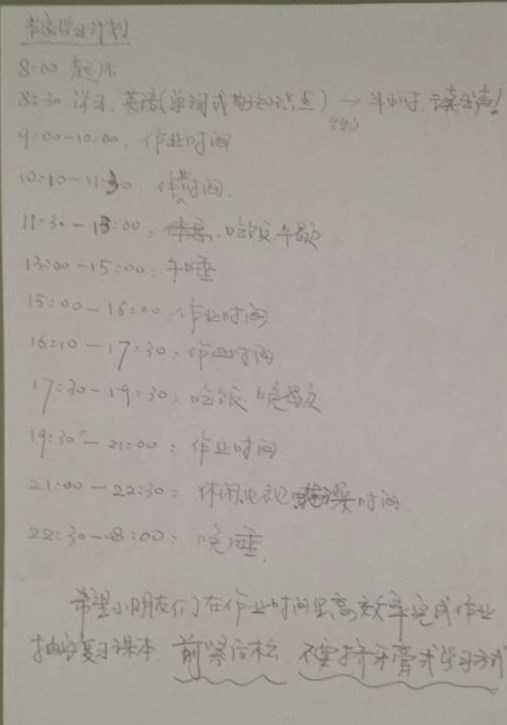 学习计划
8:00 起床
8:30 学习 英语(单词或知识点) → 半小时 读出声!
9:00-10:00, 作业时间
10:10-11:30, 作业时间.
11:30-13:00: 吃饭 午歇
13:00-15:00: 午睡
15:00-16:00: 作业时间
16:10-17:30: 作业时间
17:30-19:30: 吃饭 晚歇
19:30-21:00: 作业时间
21:00-22:30: 休闲 洗澡时间
22:30-08:00: 晚睡
希望小朋友们在作业时间里高效率完成作业
抽空复习课本 前紧后松 不要挤牙膏式学习方式